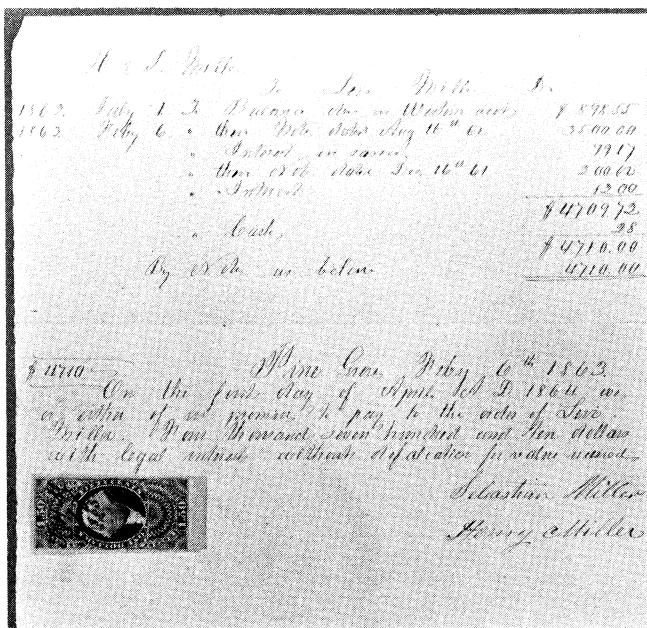 H & S. Miller
To Levi Miller Dr
1862. July 1 To Balance due on Western acct $ 898.55
1863. Feby 6 " their Note dated Aug 16th 62 3500.00
" Interest on same 99.17
" their Note date Dec 16th 61 200.00
" Interest 12.00
$ 4709.72
" Cash 28
$ 4710.00
By Note as below 4710.00
$ 4710 Pine Grove Feby 6th 1863
On the first day of April A D. 1864 we
or either of us promise to pay to the order of Levi
Miller Four thousand seven hundred and Ten dollars
with legal interest without defalcation for value received
Sebastian Miller
Henry Miller